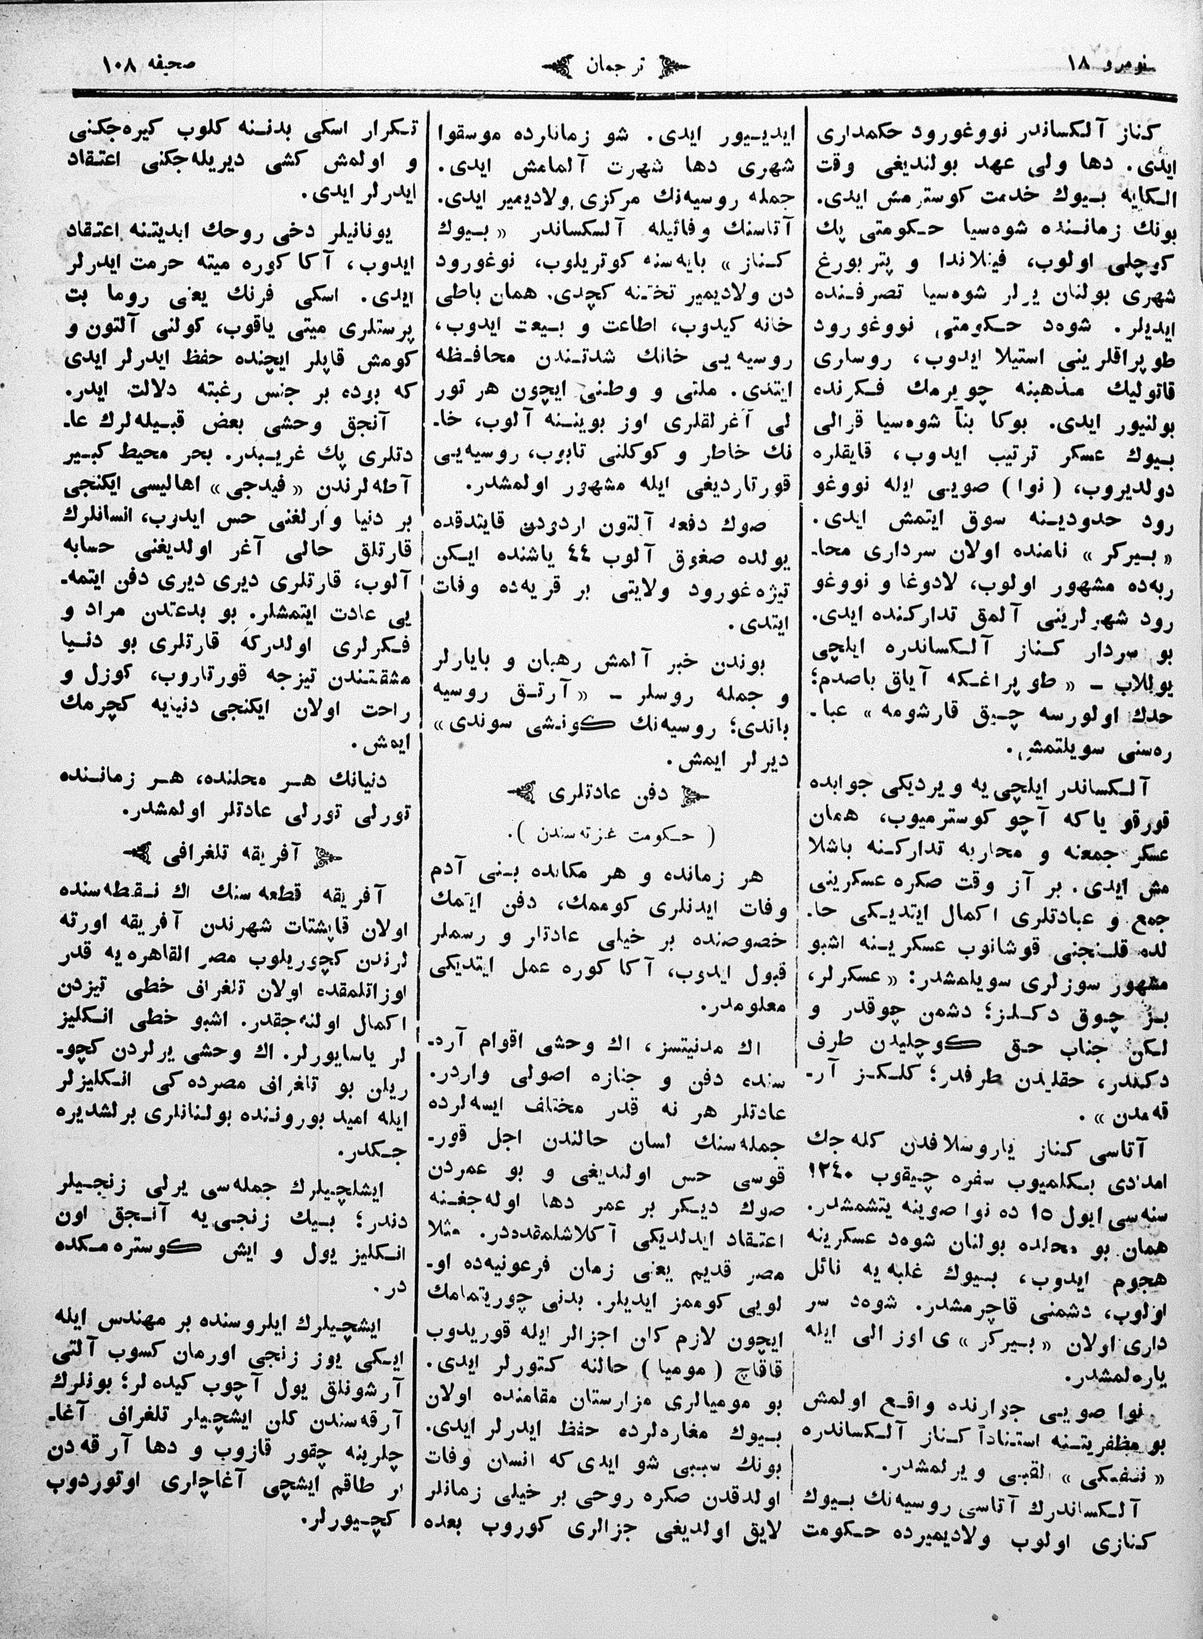 نومرو ١٨
ترجمان
صحیفه ١٠٨
کناز آلکساندر نووغورود حکمداری
ایدی. دها ولی عهد بولندیغی وقت
الکایه بیوك خدمت کوسترمش ایدی.
بونك زمانـنده شوه‌سیا حکومتی پك
کوچلی اولوب، فینلاندا و پتربورغ
شهری بولنان یرلر شوه‌سیا تصرفـنده
ایدیلر. شوه‌د حکومتی نووغورود
طوپراقلرینی استیلا ایدوب، روساری
قاتولیك مذهبنه چویرمك فـکرنده
بولنیور ایدی. بوکا بنآ شوه‌سیا قرالی
بیوك عسکر ترتیب ایدوب، قایقلره
دولدیروب، (نوا) صویی ایله نووغو
رود حدودینه سوق ایتمش ایدی.
«بیرکر» نامنده اولان سرداری محا۔
ربه‌ده مشهور اولوب، لادوغا و نووغو
رود شهرلرینی آلمق تدارکنده ایدی.
بو سردار کناز آلکساندره ایلچی
یوللاب ـ «طوپراغکه آیاق باصدم؛
حدك اولورسه چیق قارشومه» عبا۔
ره‌سنی سویلتمش.
آلکساندر ایلچی‌یه ویردیکی جوابده
قورقو یاکه آچو کوسترمیوب، همان
عسکر جمعنه و محاربه تدارکـنه باشلا
مش ایدی. بر آز وقت صکره عسکرینی
جمع و عبادتلری اکمال ایتدیکی حا۔
لده قلـنجنی قوشانوب عسکریـنه اشبو
مشهور سوزلری سویلمشدر: «عسکرلر،
بـز چوق دکلـز؛ دشمن چوقدر و
لـکن جناب حق کوچلیدن طرف
دکلدر، حقلیدن طرفدر؛ کلـکـز آر۔
قه‌مدن».
آتاسی کناز یاروسلافدن کله‌جك
امدادی بـکلمیوب سفره چیقوب ١٢٤٠
سنه‌سی ایول ١٥ ده نوا صوینه یتشمشدر.
همان بو محلده بولنان شوه‌د عسکرینه
هجوم ایدوب، بیوك غلبه‌یه نائل
اولوب، دشمنی قاچرمشدر. شوه‌د سر
داری اولان «بیرکر» ی اوز الی ایله
یاره‌لمشدر.
نوا صویی جوارنده واقع اولمش
بو مظفریتـنه استناداً کناز آلـکساندره
«نفسکی» لقبی ویرلمشدر.
آلـکساندرك آتاسی روسیه‌نك بیوك
کنازی اولوب ولادیمیرده حکومت
ایدیـیور ایدی. شو زمانلرده موسقوا
شهری دها شهرت آلمامش ایدی.
جمله روسیه‌نك مرکزی ولادیمیر ایدی.
آتاسنك وفاتیله آلـکساندر «بیوك
کناز» پایه‌سنه کوتریلوب، نوغورود
دن ولادیمیر تختـنه کچدی. همان باطی
خانه کیدوب، اطاعت و بیعت ایدوب،
روسیه‌یی خانك شدتـندن محافـظه
ایتدی. ملتی و وطنی ایچون هر تور
لی آغرلقلری اوز بوینـنه آلوب، خا۔
نك خاطر و کوکلنی تابوب، روسیه‌یی
قورتاردیغی ایله مشهور اولمشدر.
صوك دفعه آلتون اردودن قایتدقده
یولده صغوق آلوب ٤٤ یاشنده ایـکن
تیژه‌غورود ولایتی بر قریه‌ده وفات
ایتدی.
بوندن خبر آلمش رهبان و بایارلر
و جمله روسلر ـ «آرتـق روسیه
باتدی؛ روسیه‌نك کونشی سوندی»
دیرلر ایمش.
دفن عادتلری
(حکومت غزته‌سندن).
هر زمانده و هر مکانده بـنی آدم
وفات ایدنلری کوممك، دفن ایتمك
خصوصنده بر خیلی عادتلر و رسملر
قبول ایدوب، آکا کوره عمل ایتدیکی
معلومدر.
اك مدنیتسز، اك وحشی اقوام آره۔
سنده دفن و جنازه اصولی واردر.
عادتلر هر نه قدر مختلف ایسه‌لرده
جمله‌سنك لسان حالندن اجل قور۔
قوسی حس اولندیغی و بو عمردن
صوك دیـکر بر عمر دها اوله‌جغـنه
اعتقاد ایدلدیکی آکلاشلمقده‌در. مثلا
مصر قدیم یعنی زمان فرعونیه‌ده او۔
لویی کوممز ایدیلر. بدنی چوریتمامك
ایچون لازم کلن اجزالر ایله قوریدوب
قاقاچ (مومیا) حالنه کتورلر ایدی.
بو مومیالری مزارستان مقامنده اولان
بیوك مغاره‌لرده حفظ ایدرلر ایدی.
بونك سببی شو ایدی که انسان وفات
اولدقدن صکره روحی بر خیلی زمانلر
لایق اولدیغی جزالری کوروب بعده
تکرار اسکی بدنـنه کلوب کیره‌جکنی
و اولمش کشی دیریله‌جکنی اعتقاد
ایدرلر ایدی.
یونانیلر دخی روحك ابدیتـنه اعتقاد
ایدوب، آکا کوره میته حرمت ایدرلر
ایدی. اسکی فرنك یعنی روما بت
پرستلری میتی یاقوب، کولنی آلتون و
کومش قاپلر ایچنده حفظ ایدرلر ایدی
که بوده بر جنس رغبته دلالت ایدر.
آنجق وحشی بعض قبیله‌لرك عا۔
دتلری پك غریـبدر. بحر محیط کبیر
آطه‌لرندن «فیدجی» اهالیسی ایکنجی
بر دنیا وارلغنی حس ایدوب، انسانلرك
قارتلق حالی آغر اولدیغنی حسابه
آلوب، قارتلری دیری دیری دفن ایتمه۔
یی عادت ایتمشلر. بو بدعتدن مراد و
فـکرلری اولدرکه قارتلری بو دنیا
مشقتـندن تیزجه قورتاروب، کوزل و
راحت اولان ایکنجی دنیایه کچرمك
ایمش.
دنیانك هـر محلنده، هـر زمانـنده
تورلی تورلی عادتلر اولمشدر.
آفریقه تلغرافی
آفریقه قطعه‌سنك اك نـقطه‌سنده
اولان قاپشتات شهرندن آفریقه اورته
لرندن کچوریلوب مصر القاهره‌یه قدر
اوزاتلمقده اولان تلغراف خطی تیزدن
اکمال اولنه‌جقدر. اشبو خطی انـکلیز
لر یاسایورلر. اك وحشی یرلردن کچو۔
ریلن بو تلغراف مصرده‌کی انـکلیزلر
ایله امید بورونـنده بولنانلری برلشدیره
جـکدر.
ایشلچیلرك جمله‌سی یرلی زنجیلر
دندر؛ بـیك زنجی‌یه آنـجق اون
انـکلیز یول و ایش کوستره‌مـکده
در.
ایشچیلرك ایلروسنده بر مهندس ایله
ایـکی یوز زنجی اورمان کسوب آلتی
آرشونلق یول آچوب کیده‌لر؛ بونلرك
آرقه‌سندن کلن ایشچیلر تلغراف آغا۔
چلرینه چقور قازوب و دها آرقه‌دن
بر طاقم ایشچی آغاچلری اوتوردوب
کچیورلر.